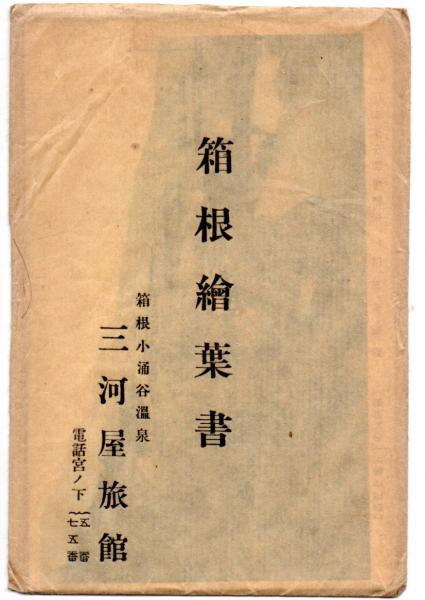 箱根繪葉書
箱根小涌谷温泉
三河屋旅館
電話宮ノ下
五番
七五番